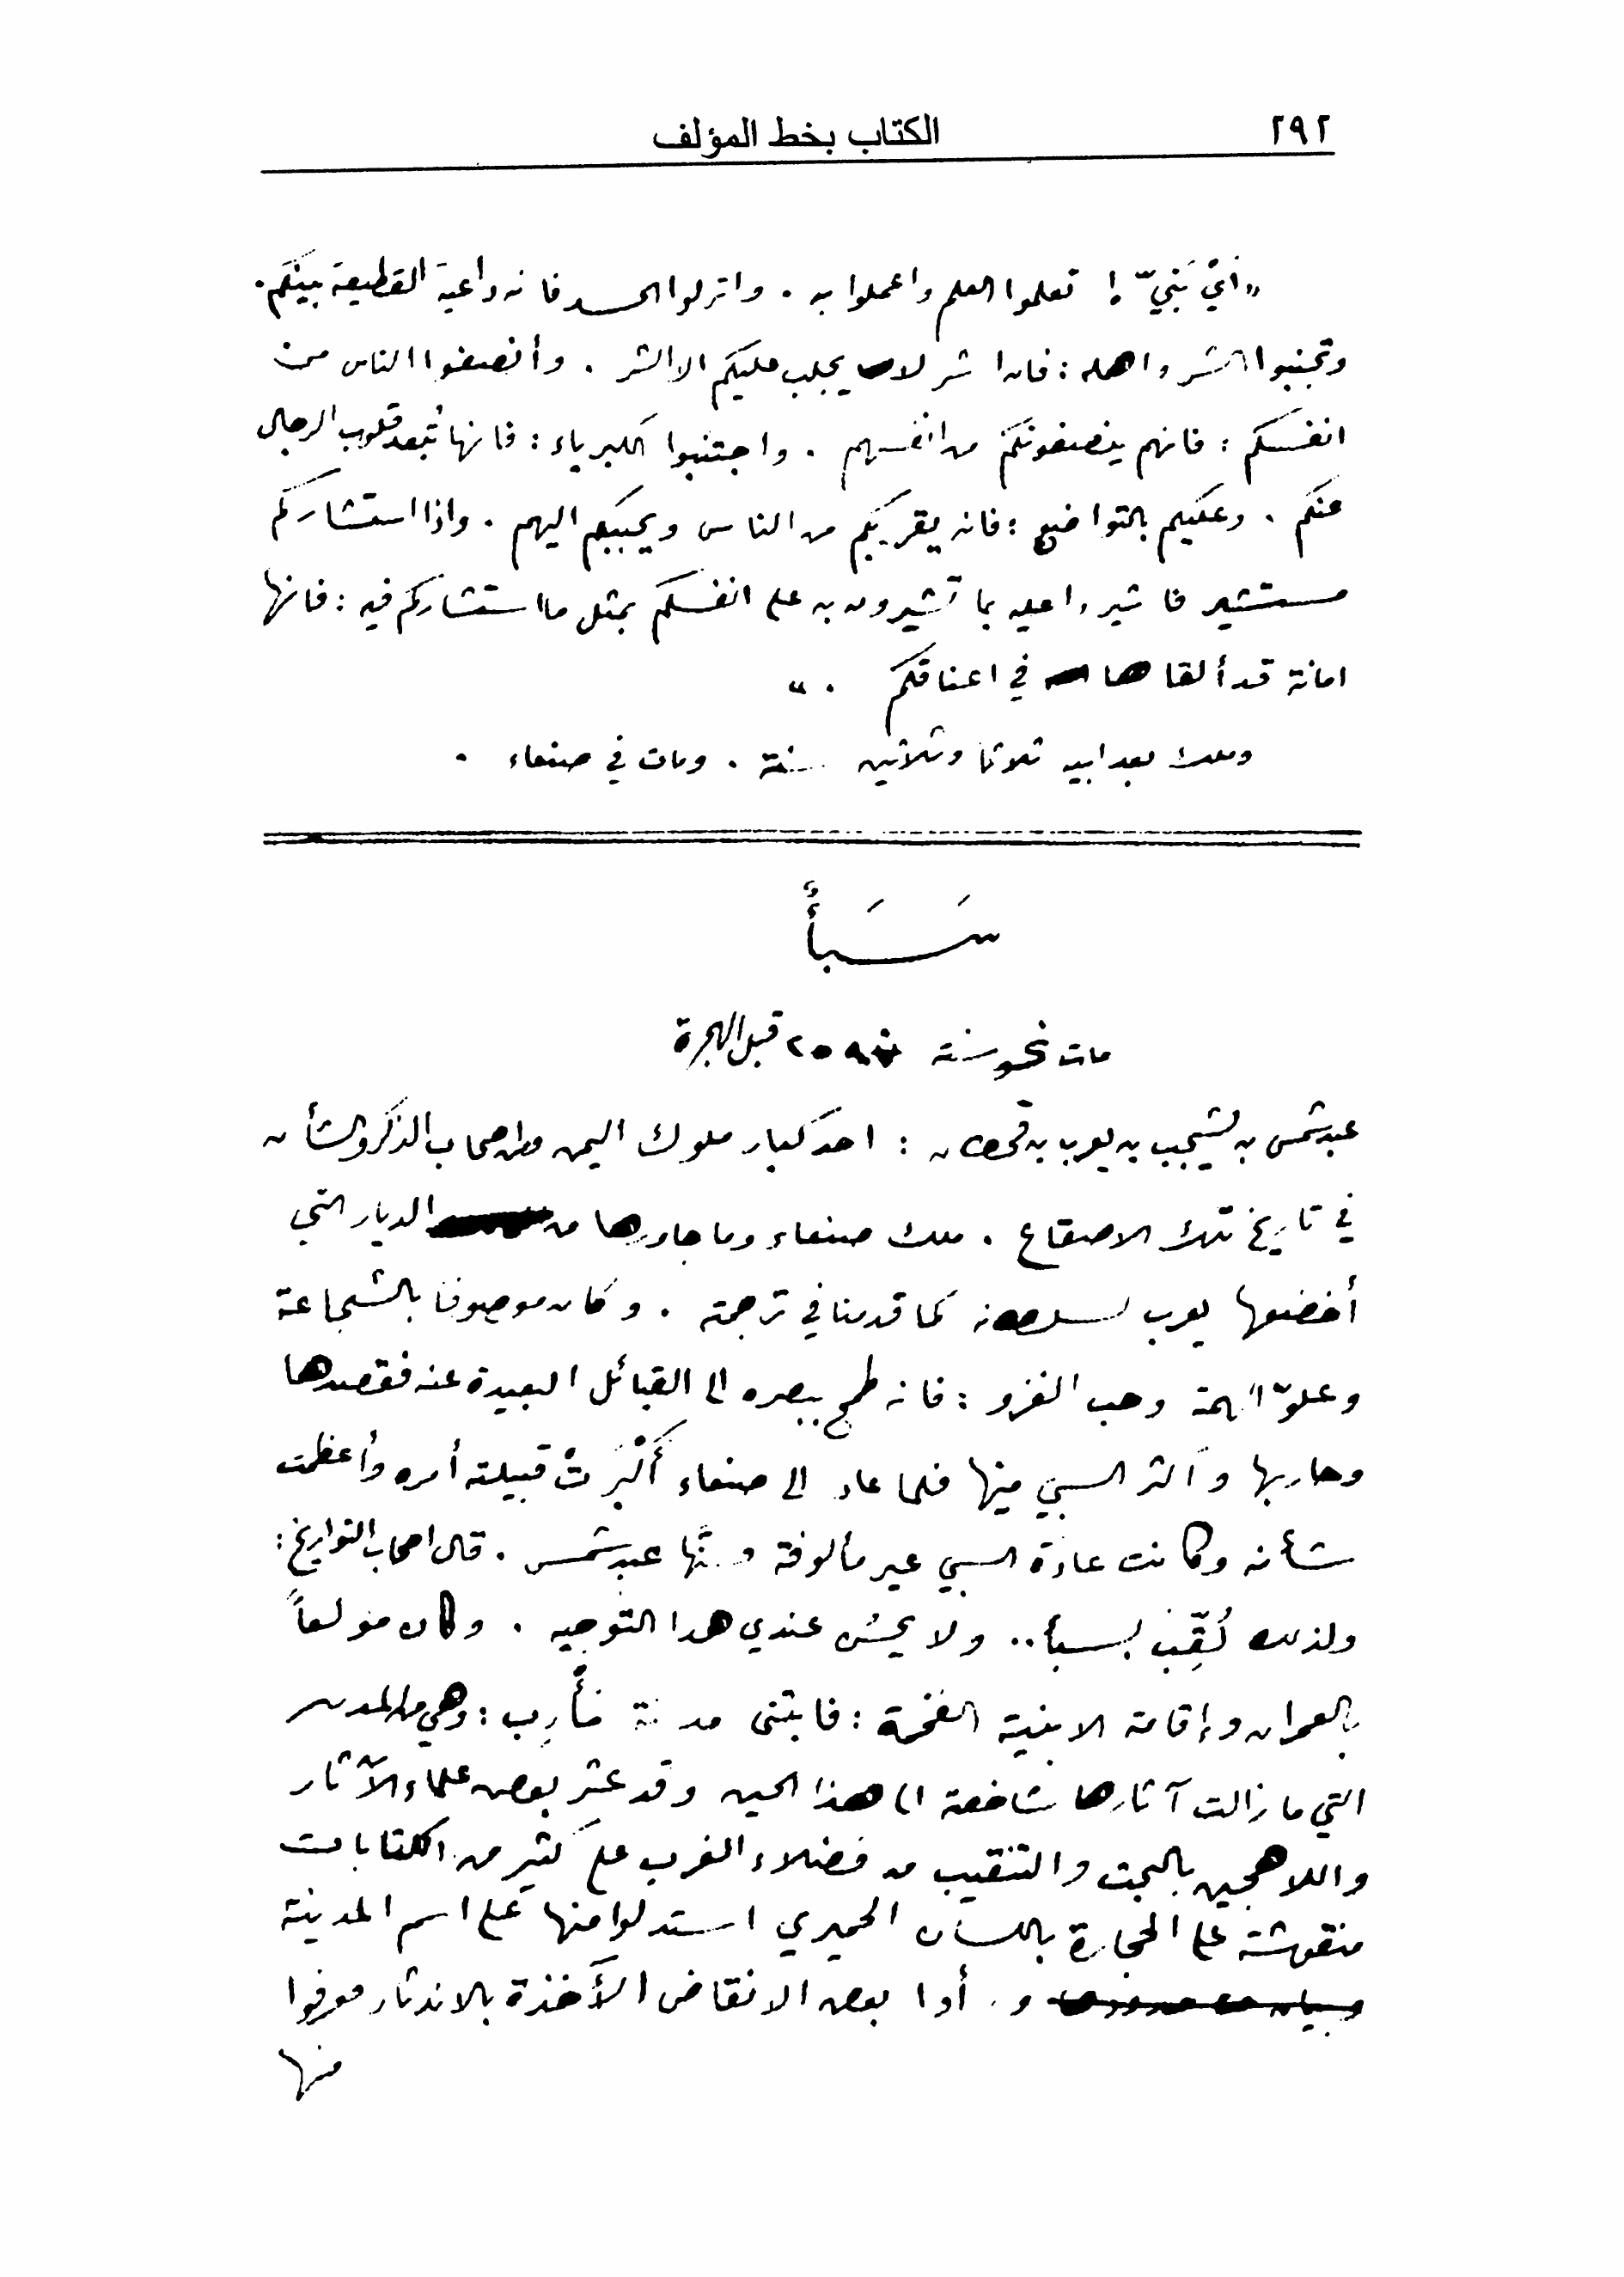 ٢٩٢ الكتاب بخط المؤلف
«أيْ بَنيّ ! تعلموا العلم واعملوا به . واتركوا الحسد فانه داعية القطيعة بينكم .
وتجنبوا الشر واهله : فان الشر لا يجلب عليكم الا الشر . وأنصفوا الناس من
انفسكم : فانهم ينصفونكم من انفسهم . واجتنبوا الكبرياء : فانها تُبعد قلوب الرجال
عنكم . وعليكم بالتواضع : فانه يقربكم من الناس ويحببكم اليهم . واذا استشاركم
مستشير فاشيروا عليه بما تشيرون به على انفسكم بمثل ما استشاركم فيه : فانها
امانة قد ألقاها في اعناقكم . »
وملك بعد ابيه ثلاثا وثلاثين سنة . ومات في صنعاء .
سَبَأٌ
مات نحو سنة ٢٥٩ قبل الهجرة
عبد شمس بن يشجب بن يعرب بن قحطان : احد كبار ملوك اليمن ومن اصحاب الذكر والشأن
في تاريخ تلك الاصقاع . ملك صنعاء وما جاورها من الديار التي
أخضعها يعرب لسلطانه كما قدمنا في ترجمته . وكان موصوفا بالشجاعة
وعلوّ الهمة وحب الغزو : فانه طمح ببصره الى القبائل البعيدة عنه فقصدها
وحاربها وأكثر السبي فيها فلما عاد الى صنعاء أَكْبَرَتْ قبيلته أمره وأعظمت
شأنه وكانت عادة السبي غير مألوفة وسنّها عبد شمس . قال اصحاب التواريخ :
ولذلك لُقِّب بسبأ .. ولا يحسُن عندي هذا التوجيه . وكان مولعاً
بالعمران وإقامة الابنية الفخمة : فابتنى مدينة مأرِب : وهي من المدن
التي ما زالت آثارها شاخصة الى هذا الحين وقد عثر بعض علماء الآثار
واللاهجين بالبحث والتنقيب من فضلاء الغرب على كثير من الكتابات
منقوشة على الحجارة باللسان الحميري استدلوا منها على اسم المدينة
ورأوا بعض الانقاض الآخذة بالاندثار فعرفوا
منها